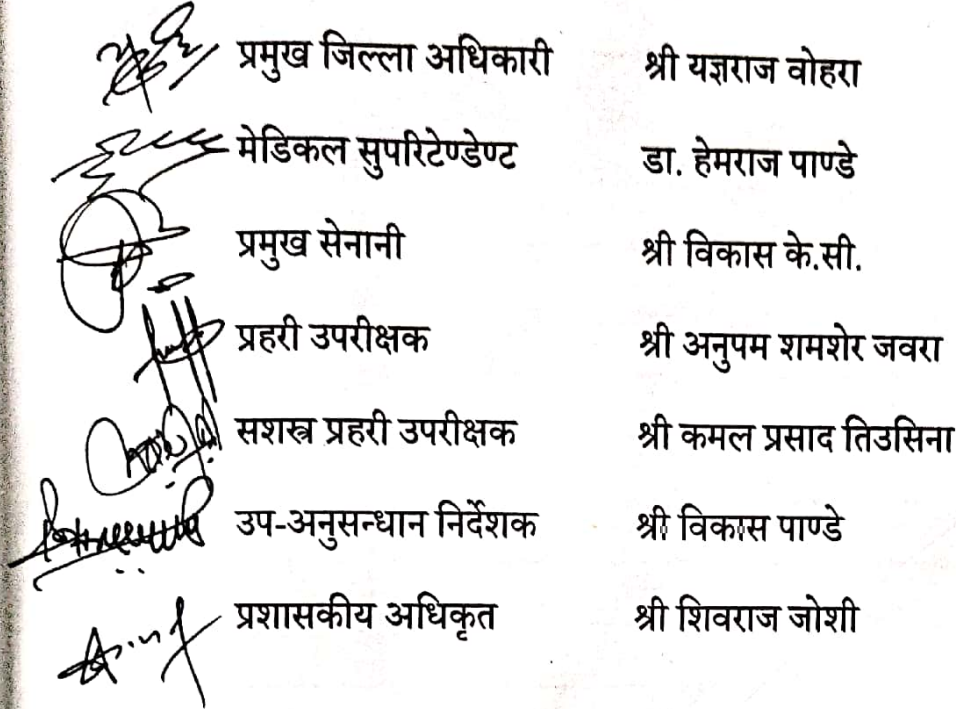 प्रमुख जिल्ला अधिकारी श्री यज्ञराज वोहरा
मेडिकल सुपरिटेण्डेण्ट डा. हेमराज पाण्डे
प्रमुख सेनानी श्री विकास के.सी.
प्रहरी उपरीक्षक श्री अनुपम शमशेर जवरा
सशस्त्र प्रहरी उपरीक्षक श्री कमल प्रसाद तिउसिना
उप-अनुसन्धान निर्देशक श्री विकास पाण्डे
प्रशासकीय अधिकृत श्री शिवराज जोशी